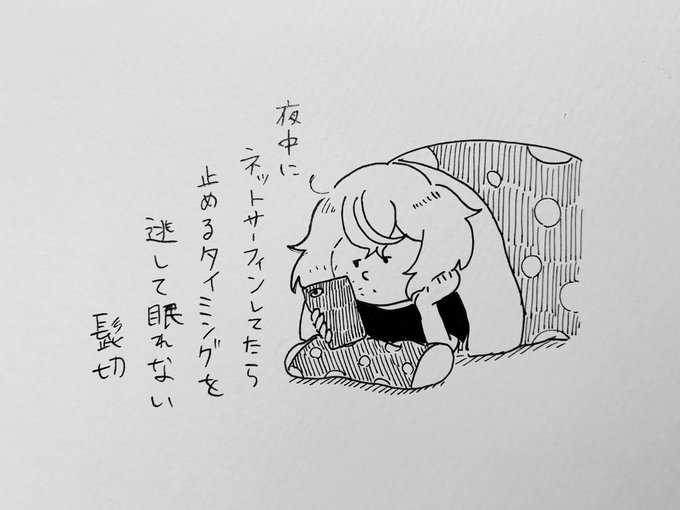 夜中に
ネットサーフィンしてたら
止めるタイミングを
逃して眠れない
髭切